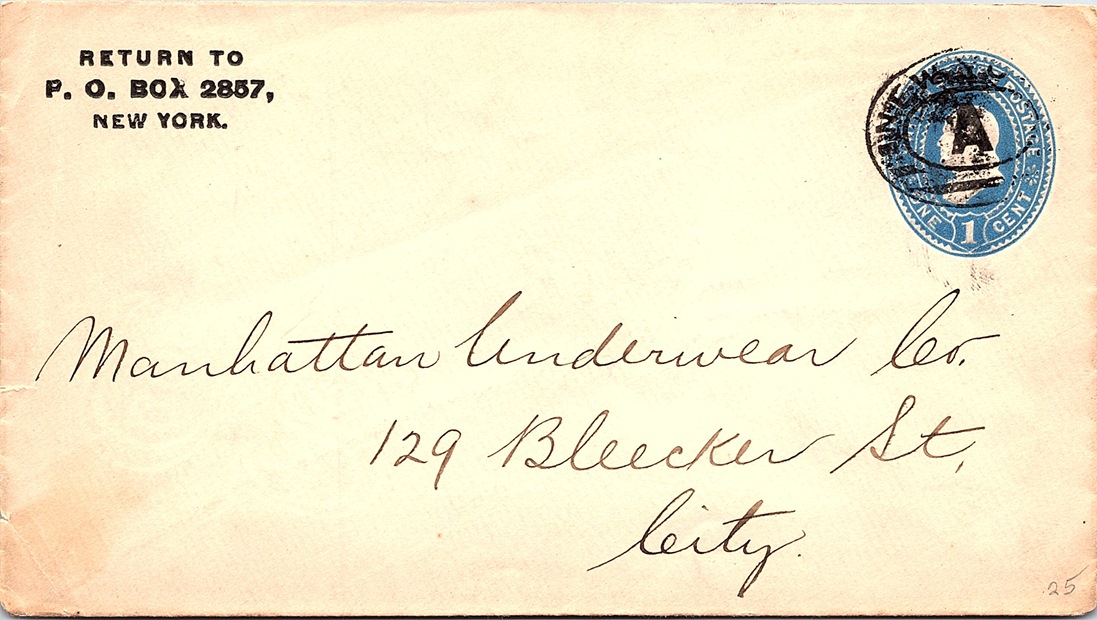 RETURN TO
P. O. BOX 2857,
NEW YORK.
POSTAGE
A
ONE 1 CENT
Manhattan Underwear Co.
129 Bleecker St,
City.
25